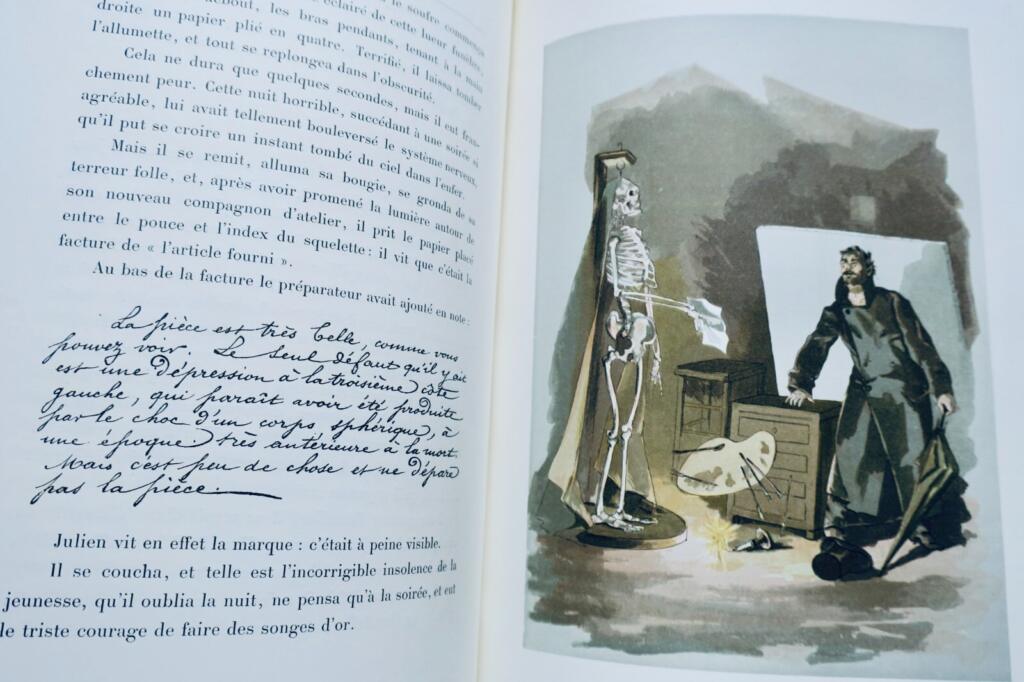 le soufre commença
debout, éclairé de cette lueur funèbre,
les bras pendants, tenant à la main
droite un papier plié en quatre. Terrifié, il laissa tomber
l'allumette, et tout se replongea dans l'obscurité.
Cela ne dura que quelques secondes, mais il eut fran-
chement peur. Cette nuit horrible, succédant à une soirée si
agréable, lui avait tellement bouleversé le système nerveux,
qu'il put se croire un instant tombé du ciel dans l'enfer.
Mais il se remit, alluma sa bougie, se gronda de sa
terreur folle, et, après avoir promené la lumière autour de
son nouveau compagnon d'atelier, il prit le papier placé
entre le pouce et l'index du squelette : il vit que c'était la
facture de « l'article fourni ».
Au bas de la facture le préparateur avait ajouté en note :
La pièce est très belle, comme vous
pouvez voir. Le seul défaut qu'il y ait
est une dépression à la troisième côte
gauche, qui paraît avoir été produite
par le choc d'un corps sphérique, à
une époque très antérieure à la mort.
Mais c'est peu de chose et ne dépare
pas la pièce.
Julien vit en effet la marque : c'était à peine visible.
Il se coucha, et telle est l'incorrigible insolence de la
jeunesse, qu'il oublia la nuit, ne pensa qu'à la soirée, et eut
le triste courage de faire des songes d'or.